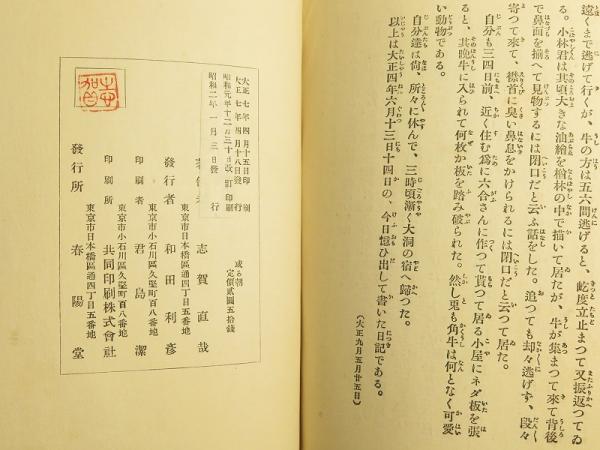 遠くまで逃げて行くが、牛の方は五六間逃げると、屹度立止まつて又振返つてゐ
る。小林君は其頃大きな油繪を楢林の中で描いて居たが、牛が集まつて來て背後
で鼻面を揃へて見物するには閉口だと云ふ話をした。追つても却々逃げず、段々
寄つて來て、襟首に臭い鼻息をかけられるには閉口だと云つて居た。
自分も三四日前、近く住む爲に六合さんに作つて貰つて居る小屋にネダ板を張
ると、其晩牛に入られて何枚か板を踏み破られた。然し兎も角牛は何となく可愛
い動物である。
自分達は尙、所々に休んで、三時頃漸く大洞の宿へ歸つた。
以上は大正四年六月十三日十四日の、今日憶ひ出して書いた日記である。
(大正九月五月廿五日)
大正七年四月十五日印刷
大正七年四月十八日發行
昭和元年十二月三十日改訂印刷
昭和二年一月三日發行
或る朝
定價貳圓五拾錢
志賀直哉
東京市日本橋區通四丁目五番地
發行者 和田利彥
東京市小石川區久堅町百八番地
印刷者 君島潔
東京市小石川區久堅町百八番地
印刷所 共同印刷株式會社
東京市日本橋區通四丁目五番地
發行所 春陽堂